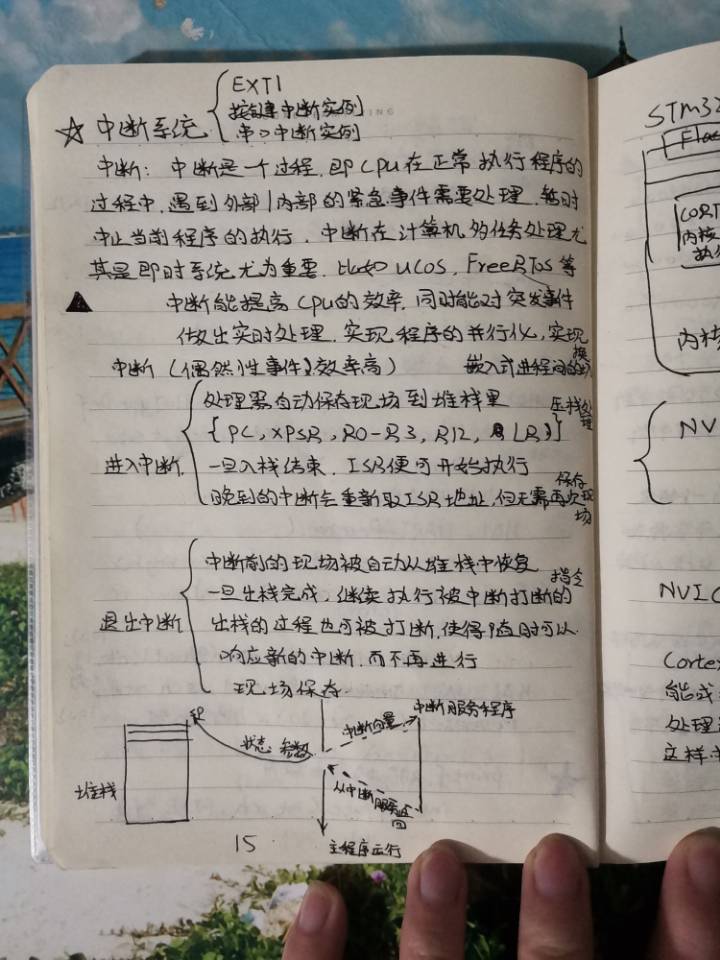 EXTI
按键中断实例
☆ 中断系统
串口中断实例
中断：中断是一个过程，即CPU在正常执行程序的
过程中，遇到外部/内部的紧急事件需要处理，暂时
中止当前程序的执行，中断在计算机多任务处理尤
其是即时系统尤为重要，比如UCOS，FreeRTOS等
▲ 中断能提高CPU的效率，同时能对突发事件
做出实时处理，实现程序的并行化，实现
嵌入式进程间的切换
中断（偶然性事件，效率高）
处理器自动保存现场到堆栈里 压栈处理
{PC，XPSR，R0-R3，R12，LR}
进入中断
一旦入栈结束，ISR便可开始执行
晚到的中断会重新取ISR地址，但无需再次保存现场
中断前的现场被自动从堆栈中恢复
一旦出栈完成，继续执行被中断打断的指令
退出中断
出栈的过程也可被打断，使得随时可以
响应新的中断，而不再进行
现场保存
中断服务程序
中断向量
状态 参数
堆栈
从中断服务返回
主程序运行
15
STM32
Flas
CORT
内核
执行
内核
NV
NVIC
Cortex
能或
处理
这样